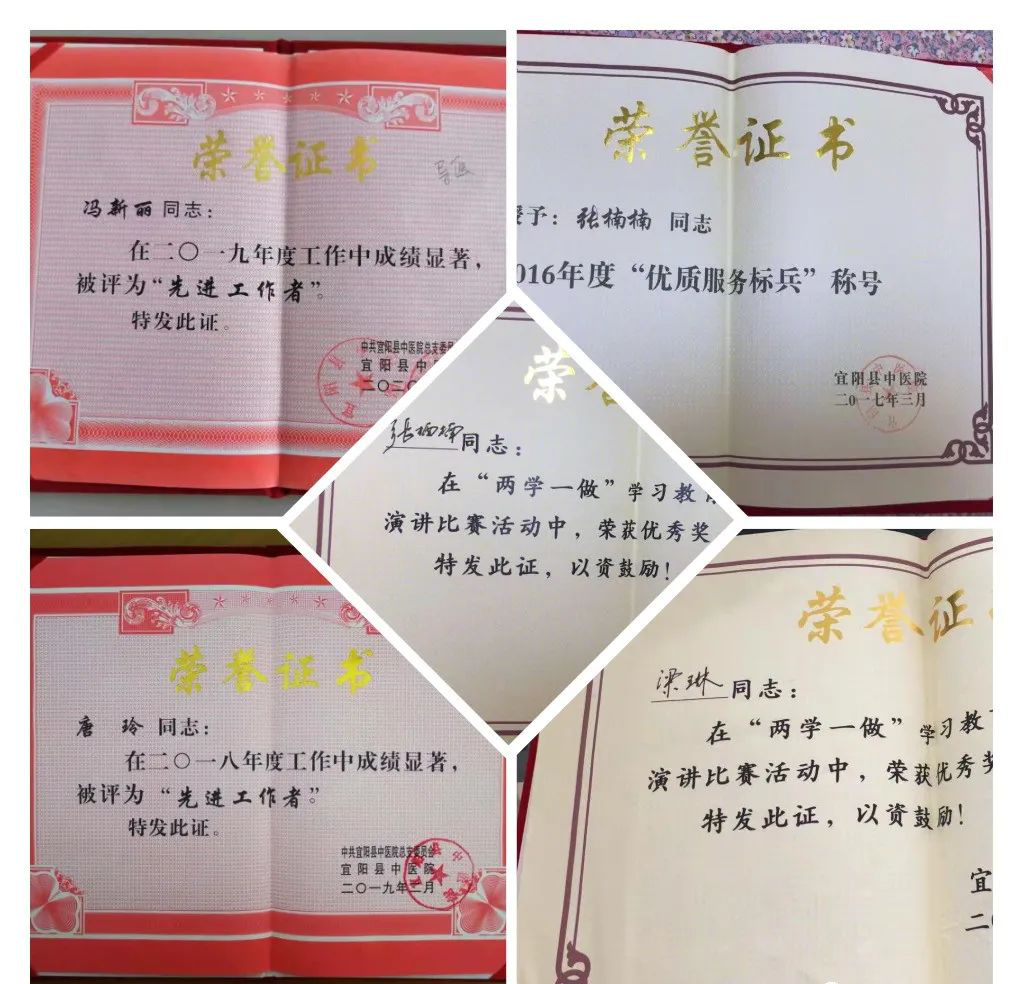 荣誉证书
冯新丽同志：
在二〇一九年度工作中成绩显著，
被评为“先进工作者”。
特发此证。
中共宜阳县中医院总支委员
宜阳县中
二〇二〇
荣誉证书
予：张楠楠 同志
016年度“优质服务标兵”称号
宜阳县中医院
二0一七年三月
荣
张楠楠同志：
在“两学一做”学习教
演讲比赛活动中，荣获优秀奖
特发此证，以资鼓励！
荣誉证书
唐 玲 同志：
在二〇一八年度工作中成绩显著，
被评为“先进工作者”。
特发此证。
中共宜阳县中医院总支委员会
宜阳县中医院
二〇一九年二月
荣誉证
梁琳同志：
在“两学一做”学习教
演讲比赛活动中，荣获优秀奖
特发此证，以资鼓励！
宜
二